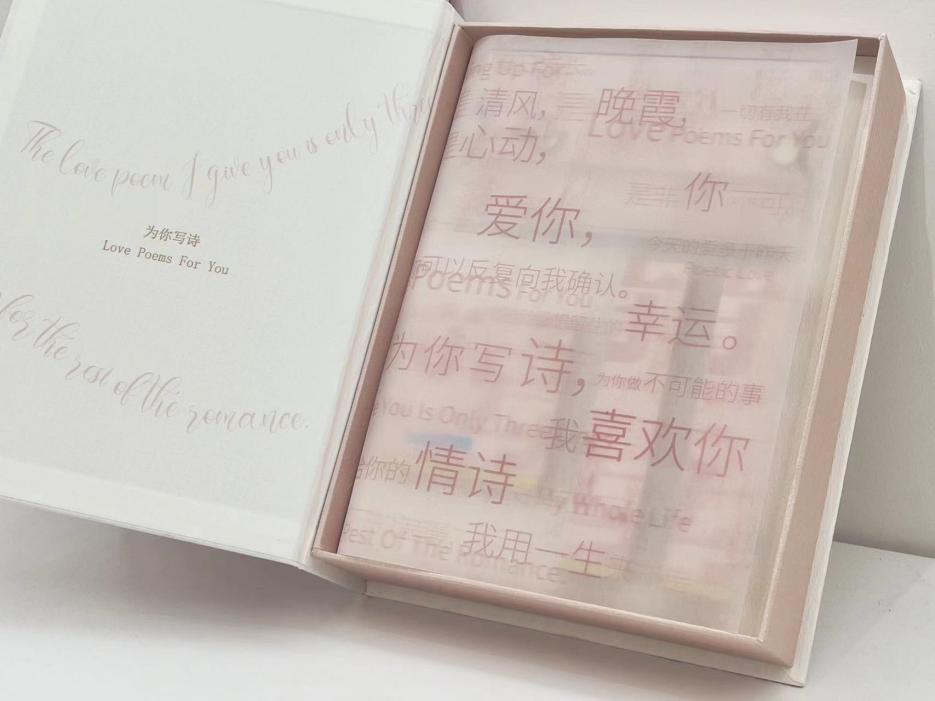 The love poem I give you is only thr
为你写诗
Love Poems For You
for the rest of the romance.
ng Up For
清风,
晚霞,
一切有我在
Love Poems For You
心动,
你
爱你,
今天的爱多于昨天
Poetic Love
可以反复向我确认。
Poems For You
幸运。
为你写诗,
为你做不可能的事
You Is Only Three
我喜欢你
给你的情诗
My Whole Life
我用一生
Rest Of The Romance